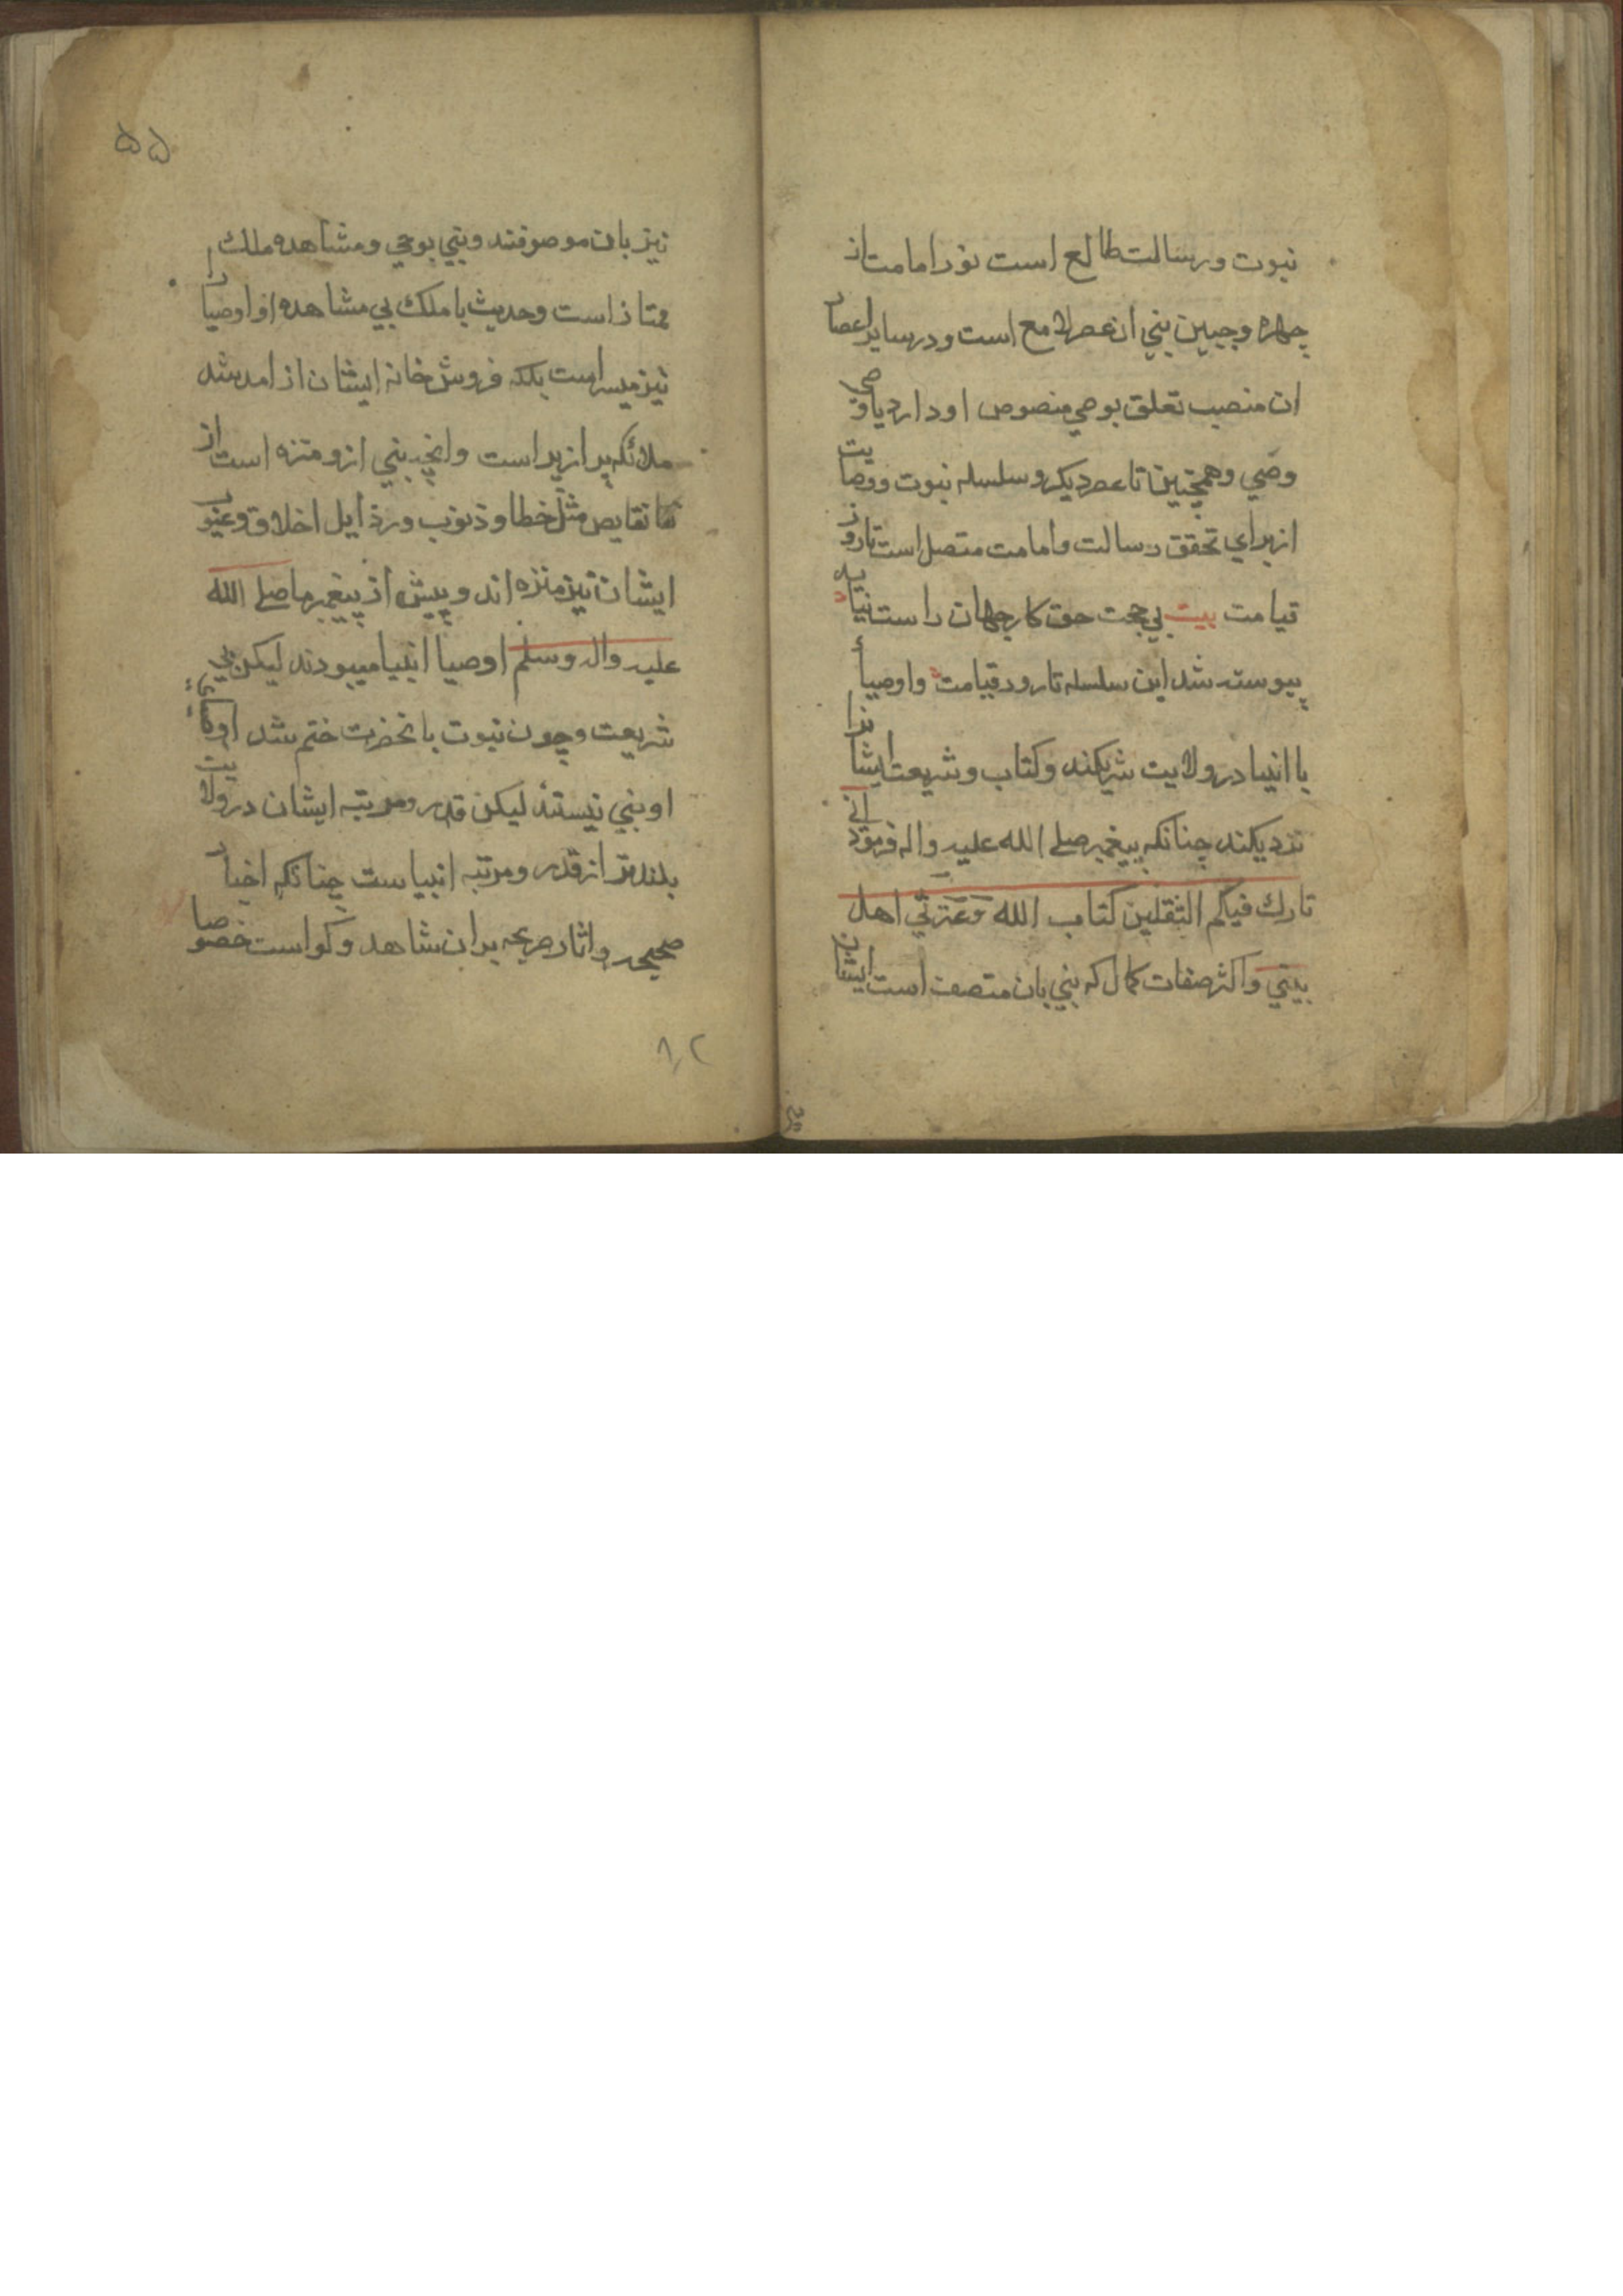 نبوت ورسالت طالع است نور امامت از
چهره وجبین نبي ان عصر لامع است ودر سایر اعصار
ان منصب تعلق بوصي منصوص او دارد یا وصي
وصي وهمچنین تا عصر دیکر وسلسله نبوت ووصایت
از برای تحقق رسالت وامامت متصل است تا روز
قیامت بیت بي حجت حق کار جهان راست نیاید
پیوسته شد این سلسله تا رود قیامت واوصیأ
با انبیا در ولایت شریکند وکتاب وشریعت ایشانرا
نزدیکند چنانکه پیغمبر صلے الله علیه واله فرموده اني
تارك فیکم الثقلین کتاب الله وَعَترتي اهل
بیتي واکثر صفات کمال که نبي بان متصف است ایشان
۵۵
نیز بان موصوفند ونبي بوحي ومشاهده ملك
ممتاز است وحدیث با ملك بي مشاهده او اوصیا را
نیز میسر است بلکه فروش خانه ایشان از امد شد
ملائکه پر از پر است وانچه نبي ازو منزه است از
نقایص مثل خطا وذنوب ورذایل اخلاق وغیر
ایشان نیز منزه اند وپیش از پیغمبر ما صلے الله
علیه واله وسلم اوصیا انبیا میبودند لیکن بي
شریعت وچون نبوت بانحضرت ختم شد اوصیای
او نبي نیستند لیکن قدر ومرتبه ایشان در ولایت
بلندتر از قدر ومرتبه انبیاست چنانکه اخبار
صحیحه واثار صریحه بر ان شاهد وکواست خصوصا
۸۲